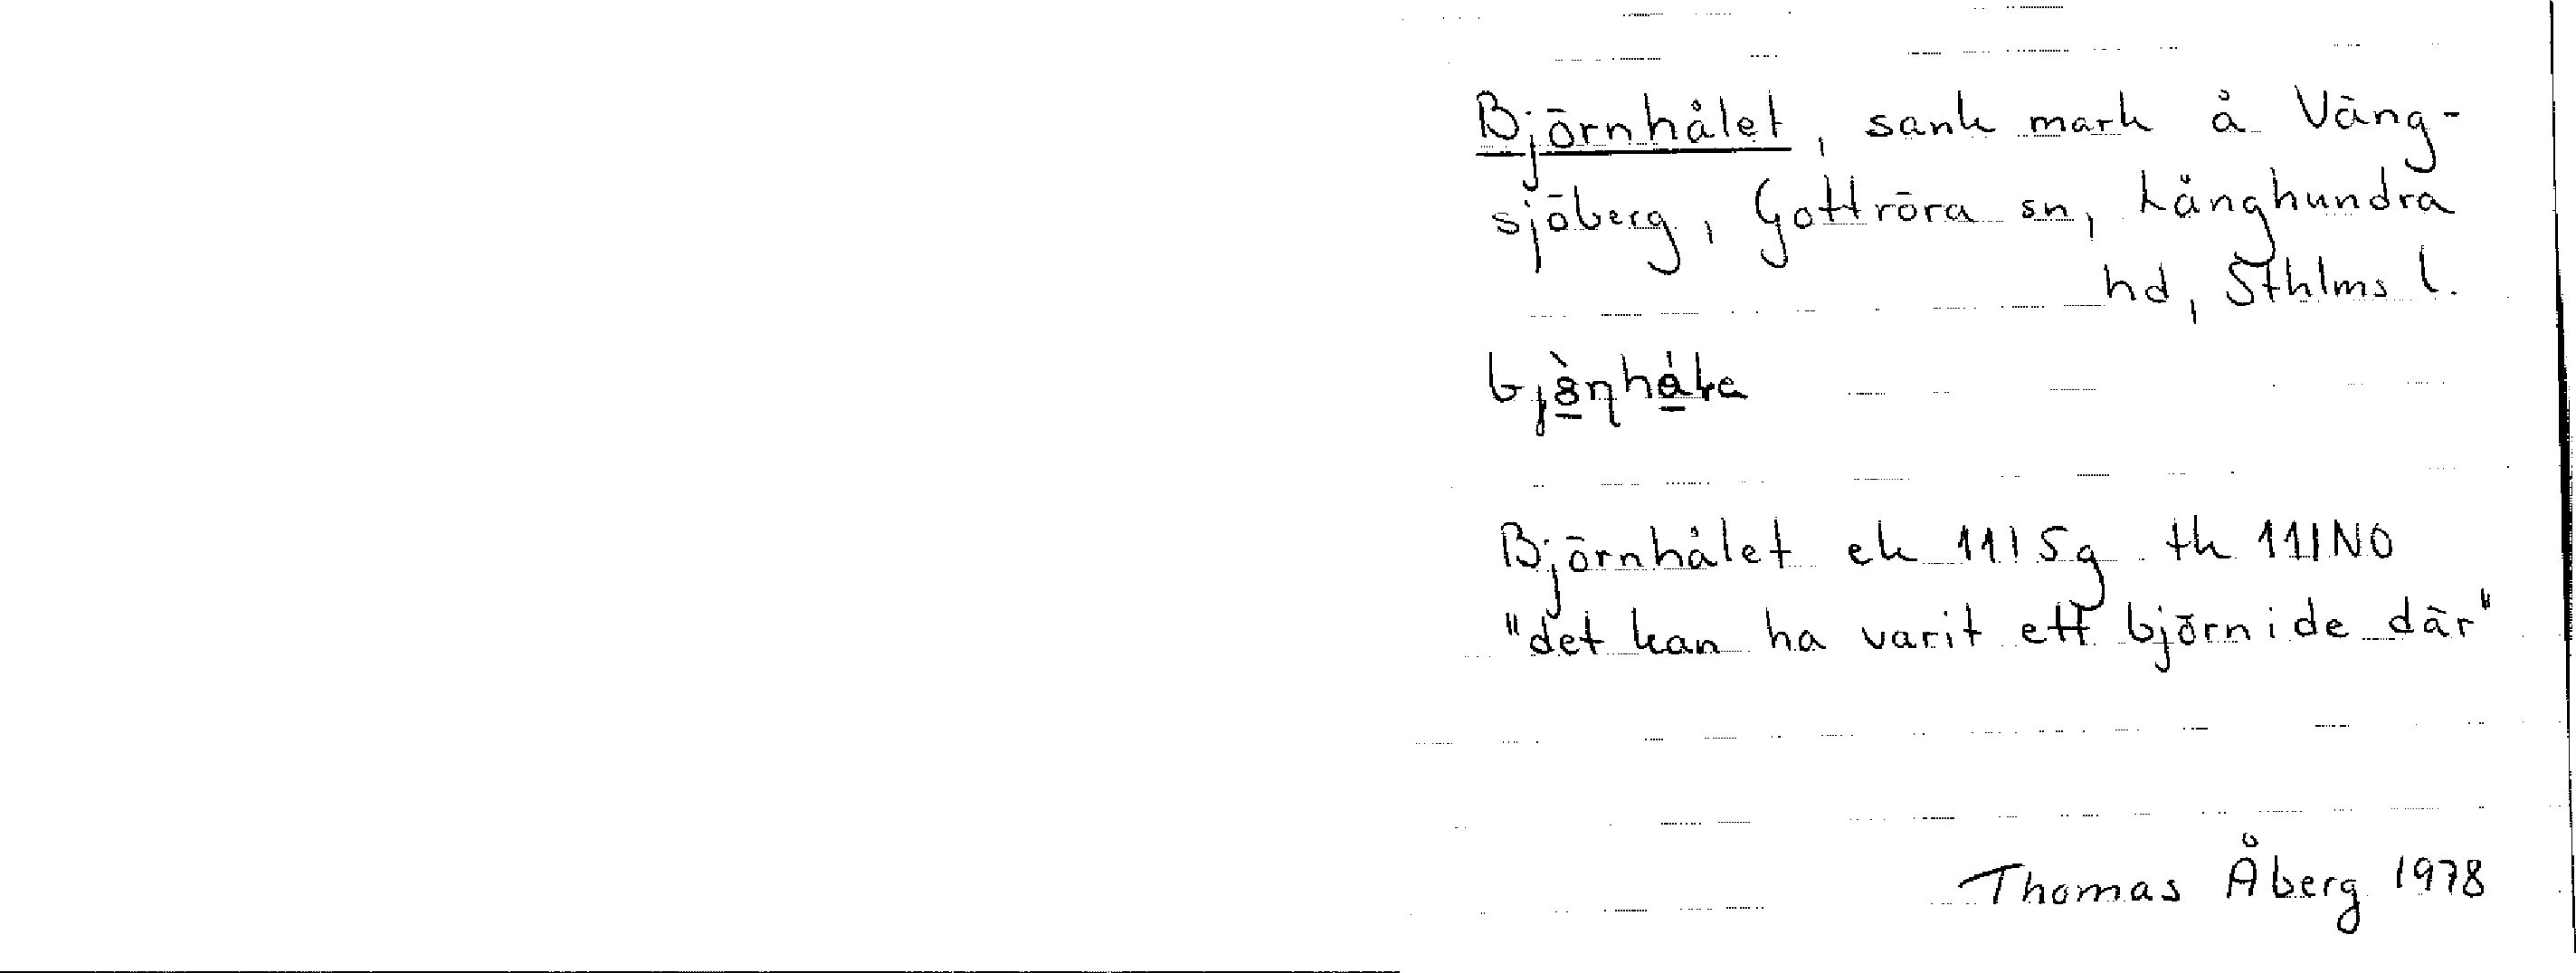 Björnhålet, sank mark å Väng-
sjöberg, Gottröra sn, Långhundra
hd, Sthlms l.
Björnhålet ek 11I5g tk 11INO
"det kan ha varit ett björnide där"
Thomas Åberg 1978